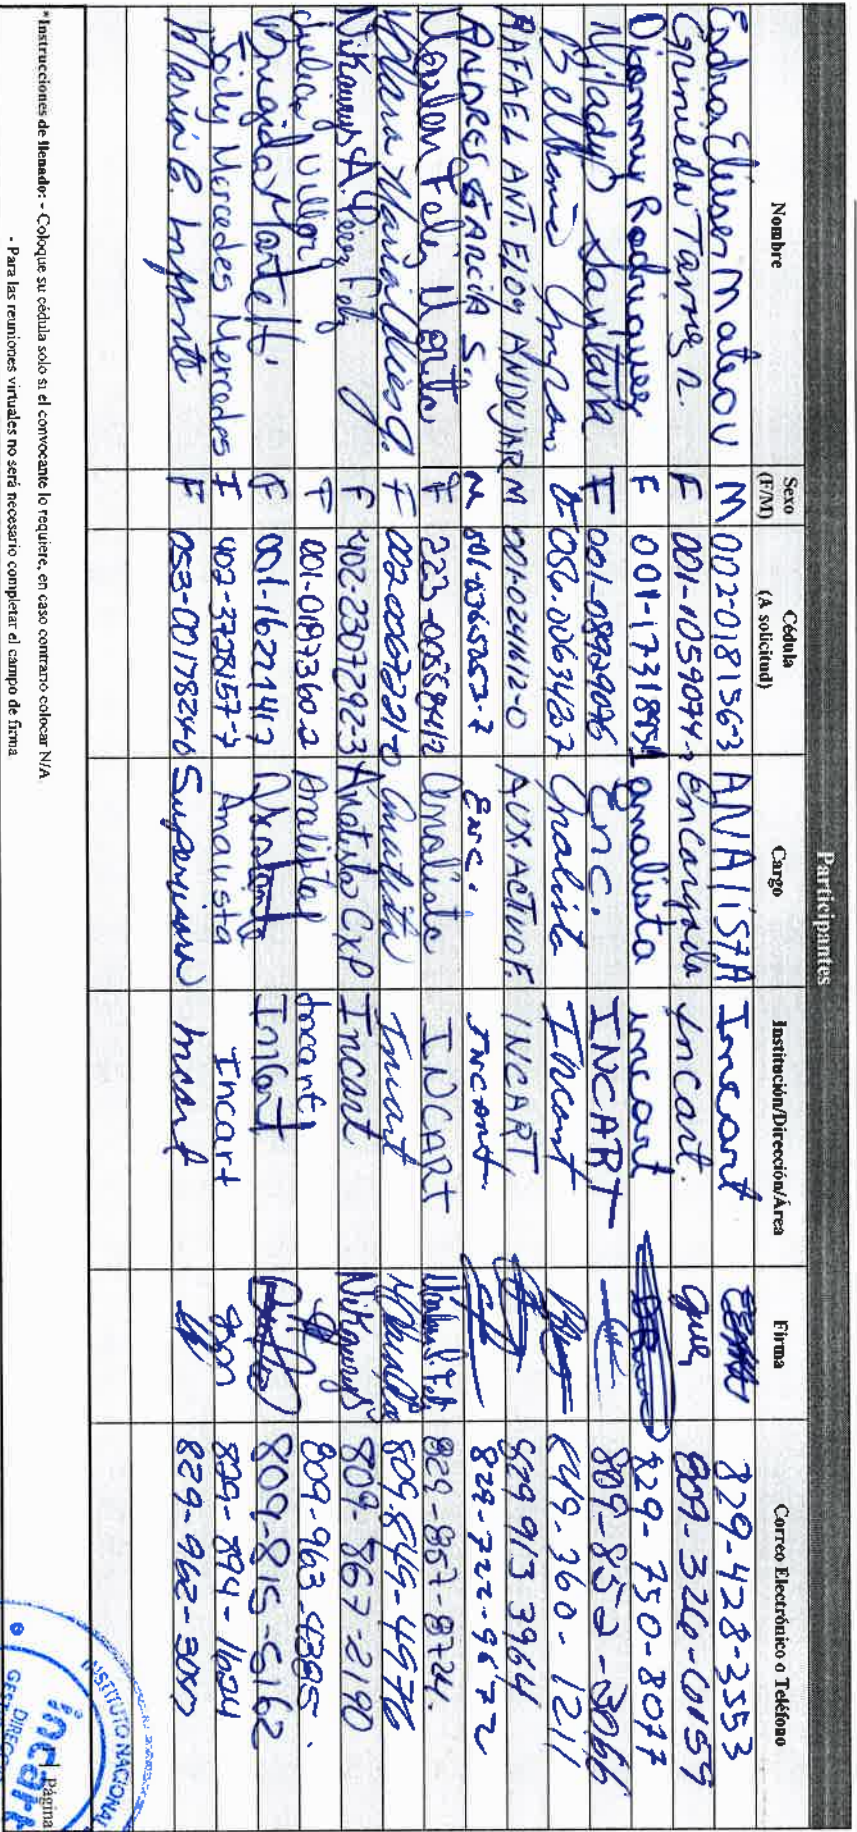 Participantes
Nombre Sexo (F/M) Cédula (A solicitud) Cargo Institución/Dirección/Área Firma Correo Electrónico o Teléfono
Esdra Elieser Mateo V M 012-0181356-3 ANALISTA Incart 829-428-3553
Griniledu Tavarez R. F 001-1059074-2 Encargada Incart. 809-326-0159
Diommy Rodriguez F 001-1731895-1 analista incart 829-750-8077
Milady Santana F 001-08929076 Enc INCART 809-852-3066
Belkania F 056-0063427 Analista Incart 849-360-1211
RAFAEL ANT. ELOY ANDUJAR M 001-0241612-0 AUX. ACTIVO F. INCART 829 913 3964
ANDRES GARCIA S. M 001-0365252-7 Enc. Incart 829-722-9672
Feliz F 223-00558412 analista INCART 829-857-8724.
Maria F 002-0067221-0 analista Incart 809-845-4976
Nikaurys A. Pérez Feliz F 402-2307292-3 Analista CXP Incart Nikaurys 809-867-2190
Julia Villar F 001-0187360-2 Analista Incart 809-963-4385.
Brigida Marte H. F 001-1622141-7 Incart 809-815-5162
Soily Mercedes Mercedes F 402-3728157-7 Analista Incart 829-894-1624
María E. Infante F 053-00178240 Supervisora Incart 829-962-3050
*Instrucciones de llenado: - Coloque su cédula solo si el convocante lo requiere, en caso contrario colocar N/A
- Para las reuniones virtuales no será necesario completar el campo de firma
Página
INSTITUTO NACIONAL
incart